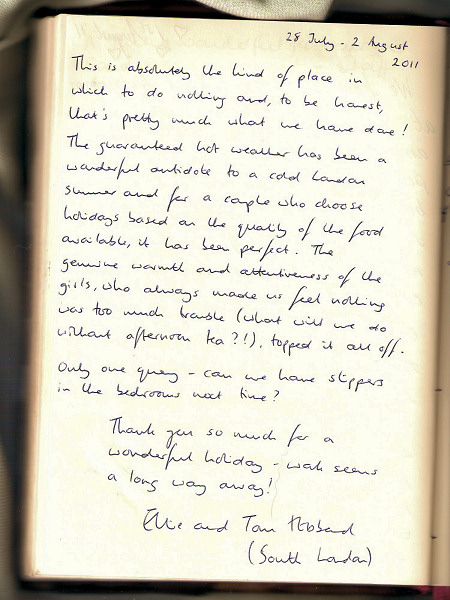 28 July - 2 August
2011
This is absolutely the kind of place in
which to do nothing and, to be honest,
that's pretty much what we have done!
The guaranteed hot weather has been a
wonderful antidote to a cold London
summer and for a couple who choose
holidays based on the quality of the food
available, it has been perfect. The
genuine warmth and attentiveness of the
girls, who always made us feel nothing
was too much trouble (what will we do
without afternoon tea?!), topped it all off.
Only one query - can we have slippers
in the bedrooms next time?
Thank you so much for a
wonderful holiday - work seems
a long way away!
Ellie and Tom Hibberd
(South London)